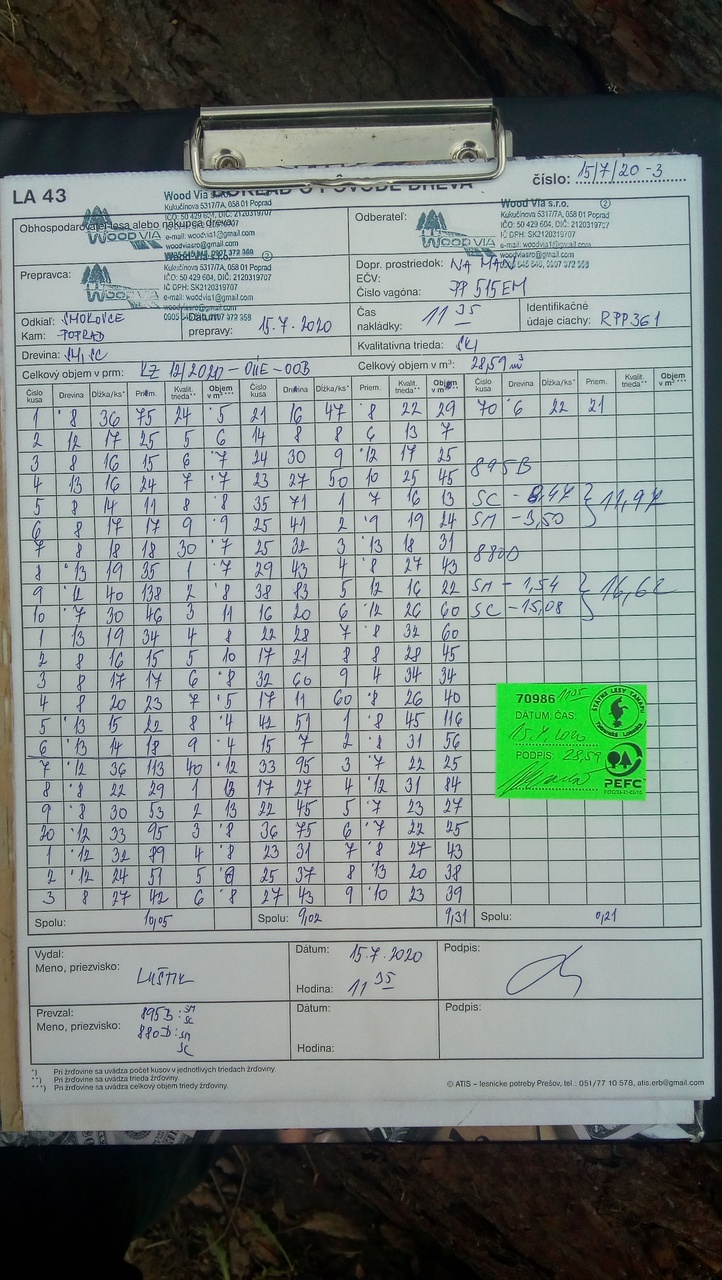 LA 43
DOKLAD O PÔVODE DREVA
číslo: 15/7/20-3
Obhospodarovateľ lesa alebo nákupca dreva:
Wood Via s.r.o.
Kukučínova 5317/A, 058 01 Poprad
IČO: 50 429 604, DIČ: 2120319707
e-mail: woodvia1@gmail.com
WOOD VIA
Odberateľ:
Wood Via s.r.o. 2
Kukučínova 5317/A, 058 01 Poprad
IČO: 50 429 604, DIČ: 2120319707
IČ DPH: SK2120319707
e-mail: woodvia1@gmail.com
WOOD VIA
Prepravca:
Kukučínova 5317/A, 058 01 Poprad
IČO: 50 429 604, DIČ: 2120319707
IČ DPH: SK2120319707
e-mail: woodvia1@gmail.com
Dopr. prostriedok:
EČV:
Číslo vagóna: PP 515EM
Odkiaľ: SMOKOVCE
Kam: POPRAD
Dátum prepravy: 15.7.2020
Čas nakládky: 11 35
Identifikačné údaje ciachy: RPP361
Drevina: SM, SC
Kvalitatívna trieda:
Celkový objem v prm:
Celkový objem v m³: 28,59 m³
Číslo kusa Drevina Dĺžka/ks* Priem. Kvalit. trieda** Objem v m³*** Číslo kusa Drevina Dĺžka/ks* Priem. Kvalit. trieda** Objem v m³*** Číslo kusa Drevina Dĺžka/ks* Priem. Kvalit. trieda** Objem v m³***
1 8 36 75 24 5 21 16 47 8 22 29 70 6 22 21
2 12 17 25 5 6 14 8 8 6 13 7
3 8 16 15 6 7 24 30 9 12 17 25
4 13 16 24 7 7 23 27 50 10 25 45
895B
5 8 14 11 8 8 35 71 1 7 16 13
SC - 8,47 } 11,97
6 8 17 17 9 9 25 41 2 9 19 24
SM - 3,50
7 8 18 18 30 7 25 32 3 13 18 31
880D
8 13 19 35 1 7 29 43 4 8 27 43
9 12 40 138 2 8 38 83 5 12 16 22
SM - 1,54 } 16,62
10 7 30 46 3 11 16 20 6 12 26 60
SC - 15,08
1 13 19 34 4 8 22 28 7 8 32 60
2 8 16 15 5 10 17 21 8 8 28 45
3 8 17 17 6 8 32 60 9 4 34 34
4 8 20 23 7 5 17 11 60 8 26 40
5 13 15 22 8 4 42 51 1 8 45 116
6 13 14 18 9 4 15 7 2 8 31 56
7 12 36 113 40 12 33 95 3 7 22 25
8 8 22 29 1 13 17 27 4 12 31 84
9 8 30 53 2 13 22 45 5 7 23 27
20 12 33 95 3 8 36 75 6 7 22 25
1 12 32 89 4 8 23 31 7 8 27 43
2 12 24 51 5 8 25 37 8 13 20 38
3 8 27 42 6 8 27 43 9 10 23 39
70986 1105
DÁTUM, ČAS:
15.7.2020
PODPIS: 28,59
ŠTÁTNE LESY TANAPu
Tatranská Lomnica
PEFC
Spolu: 10,05 Spolu: 9,02 9,31 Spolu: 0,21
Vydal:
Meno, priezvisko: LUŠTIK
Dátum: 15.7.2020
Hodina: 11 35
Podpis:
Prevzal: 895B: SM
SC
Meno, priezvisko: 880D: SM
SC
Dátum:
Hodina:
Podpis:
*) Pri žrďovine sa uvádza počet kusov v jednotlivých triedach žrďoviny.
**) Pri žrďovine sa uvádza trieda žrďoviny.
***) Pri žrďovine sa uvádza celkový objem triedy žrďoviny.
© ATIS – lesnícke potreby Prešov, tel.: 051/77 10 578, atis.erb@gmail.com